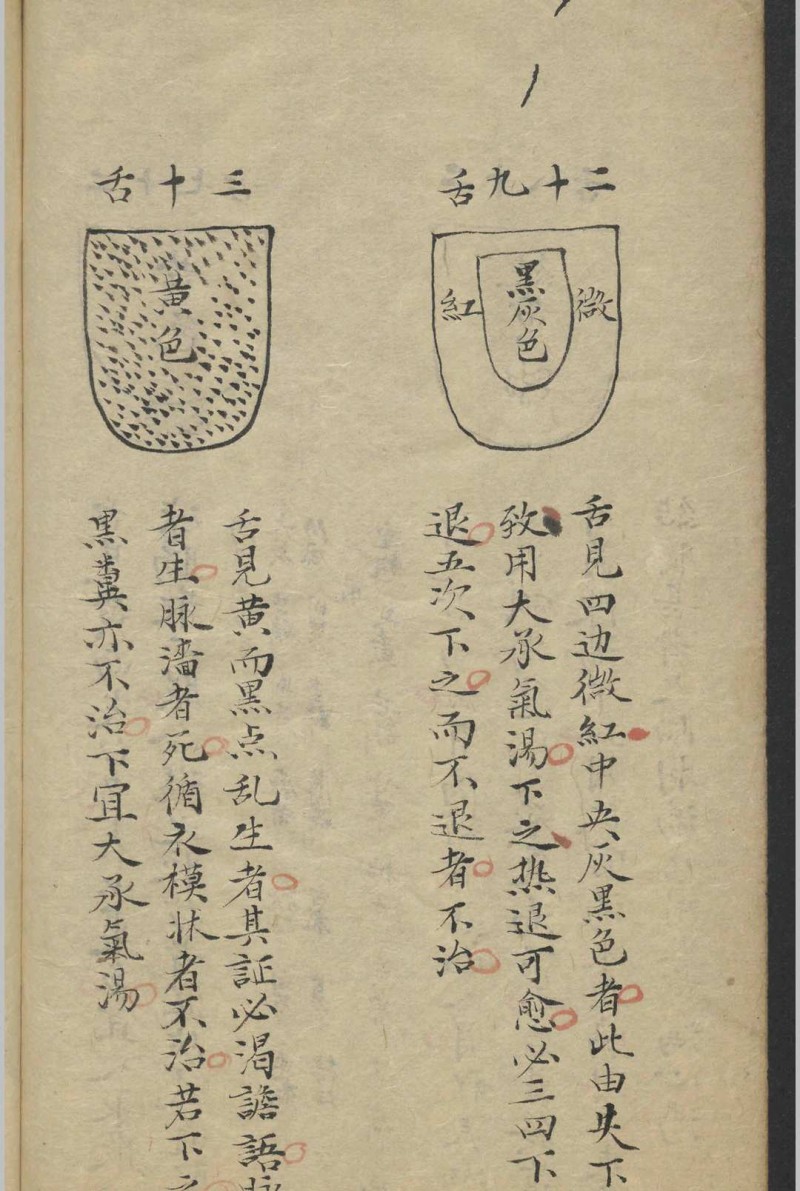 二十九舌
微
黑灰色
紅
舌見四边微紅中央灰黑色者此由失下
致用大承氣湯下之热退可愈必三四下
退五次下之而不退者不治
三十舌
黃色
舌見黃而黑点乱生者其証必渴譫語脉
者生脉濇者死循衣模牀者不治若下之
黑糞亦不治下宜大承氣湯